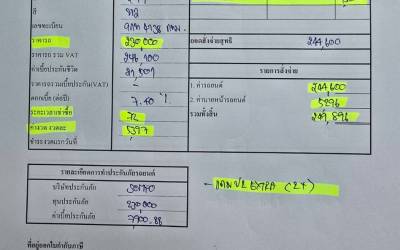 สี
เลขทะเบียน
ราคารถ 230,000 ยอดสั่งจ่ายสุทธิ 244,600
ราคารถ รวม VAT 246,100
ค่าเบี้ยประกันชีวิต
รายการสั่งจ่าย
ราคารถรวมเบี้ยประกัน(VAT) 1. ค่ารถยนต์ 244,600
ดอกเบี้ย (ต่อปี) 7.40 % 2. ค่านายหน้ารถยนต์ 5296
ระยะเวลาเช่าซื้อ 72 รวมทั้งสิ้น 249,896
ค่างวด งวดละ 5397
ชำระงวดแรกวันที่
รายละเอียดการทำประกันภัยรถยนต์
บริษัทประกันภัย
ทุนประกันภัย 230,000
ค่าเบี้ยประกันภัย 7900.88
EXTRA (2+)
ที่อยู่ออกใบกำกับภาษี